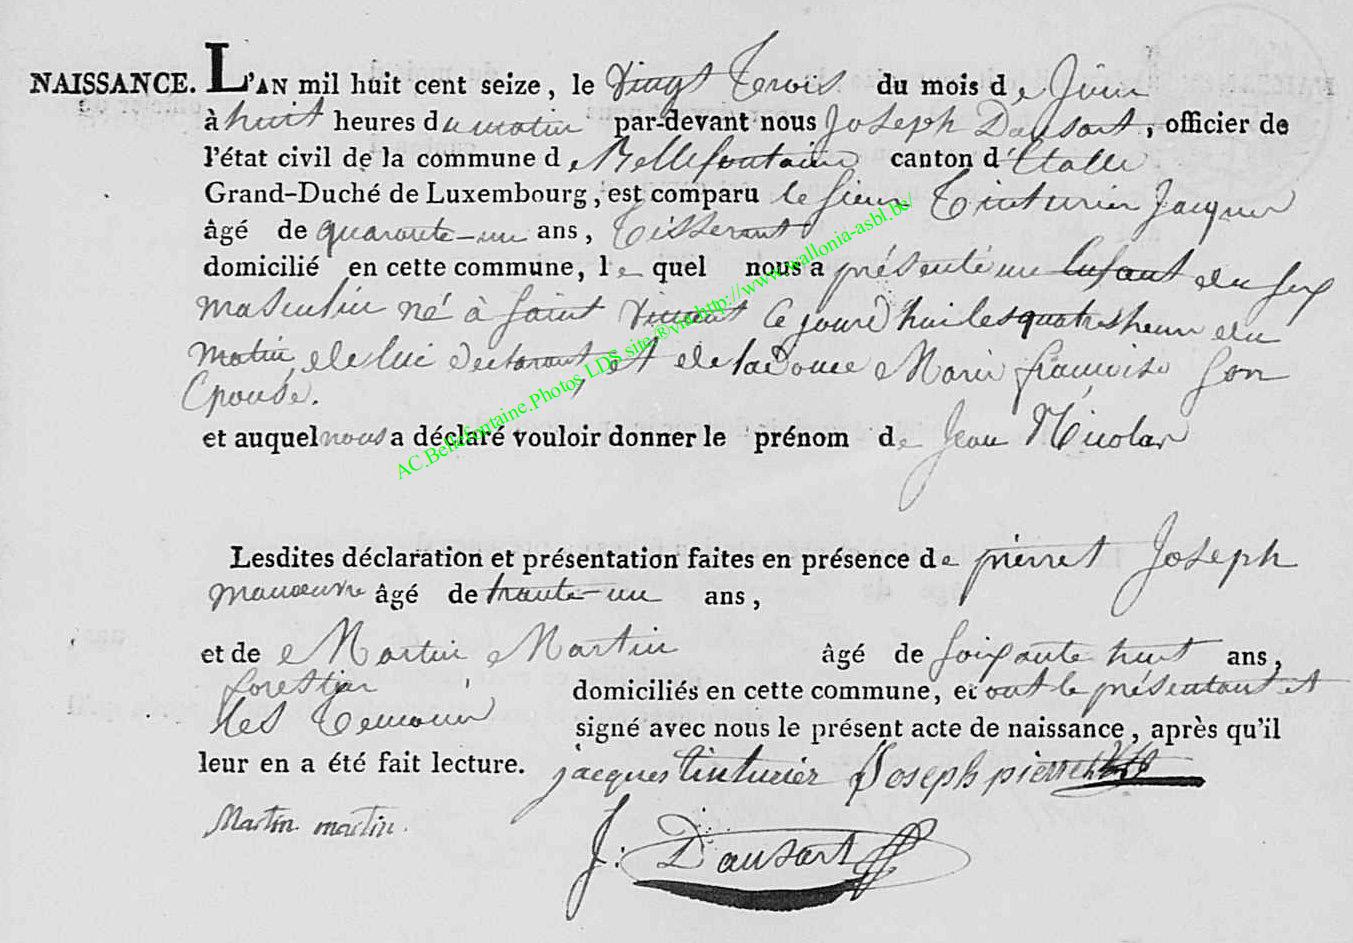 NAISSANCE. L'AN mil huit cent seize, le vingt trois du mois de Juin
à huit heures du matin par-devant nous Joseph Dausart, officier de
l'état civil de la commune de Bellefontaine canton d'Etalle
Grand-Duché de Luxembourg, est comparu le sieur Tinturier Jacques
âgé de quarante-un ans, Tisserant
domicilié en cette commune, le quel nous a présenté un Enfant du sex
masculin né à saint vincent ce jourd'hui les quatres heures du
matin, de lui déclarant, et de la Marie françoise son
Epouse.
et auquel nous a déclaré vouloir donner le prénom de Jean Nicolas
Lesdites déclaration et présentation faites en présence de pierret Joseph
manœuvre âgé de trante-un ans,
et de Martin Martin âgé de soixante huit ans,
forestier domiciliés en cette commune, et ont le présentant et
les Temoins signé avec nous le présent acte de naissance, après qu'il
leur en a été fait lecture. jacques tinturier Joseph pierret
Martin martin.
J: Dausart
AC.Bellefontaine.Photos LDS site ®via http://www.wallonia-asbl.be/